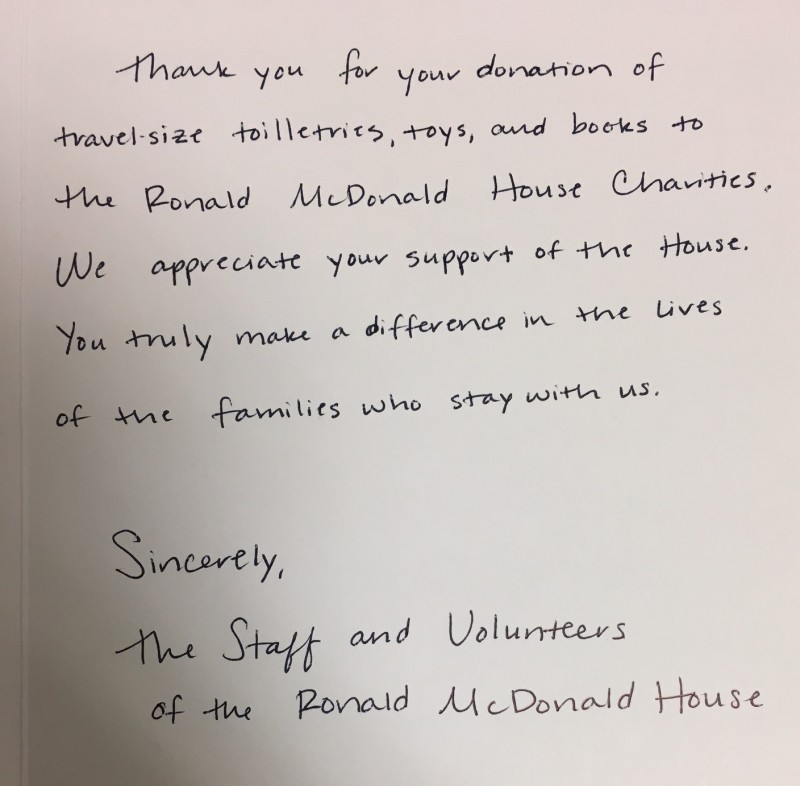 Thank you for your donation of
travel-size toilletries, toys, and books to
the Ronald McDonald House Charities.
We appreciate your support of the House.
You truly make a difference in the lives
of the families who stay with us.
Sincerely,
the Staff and Volunteers
of the Ronald McDonald House